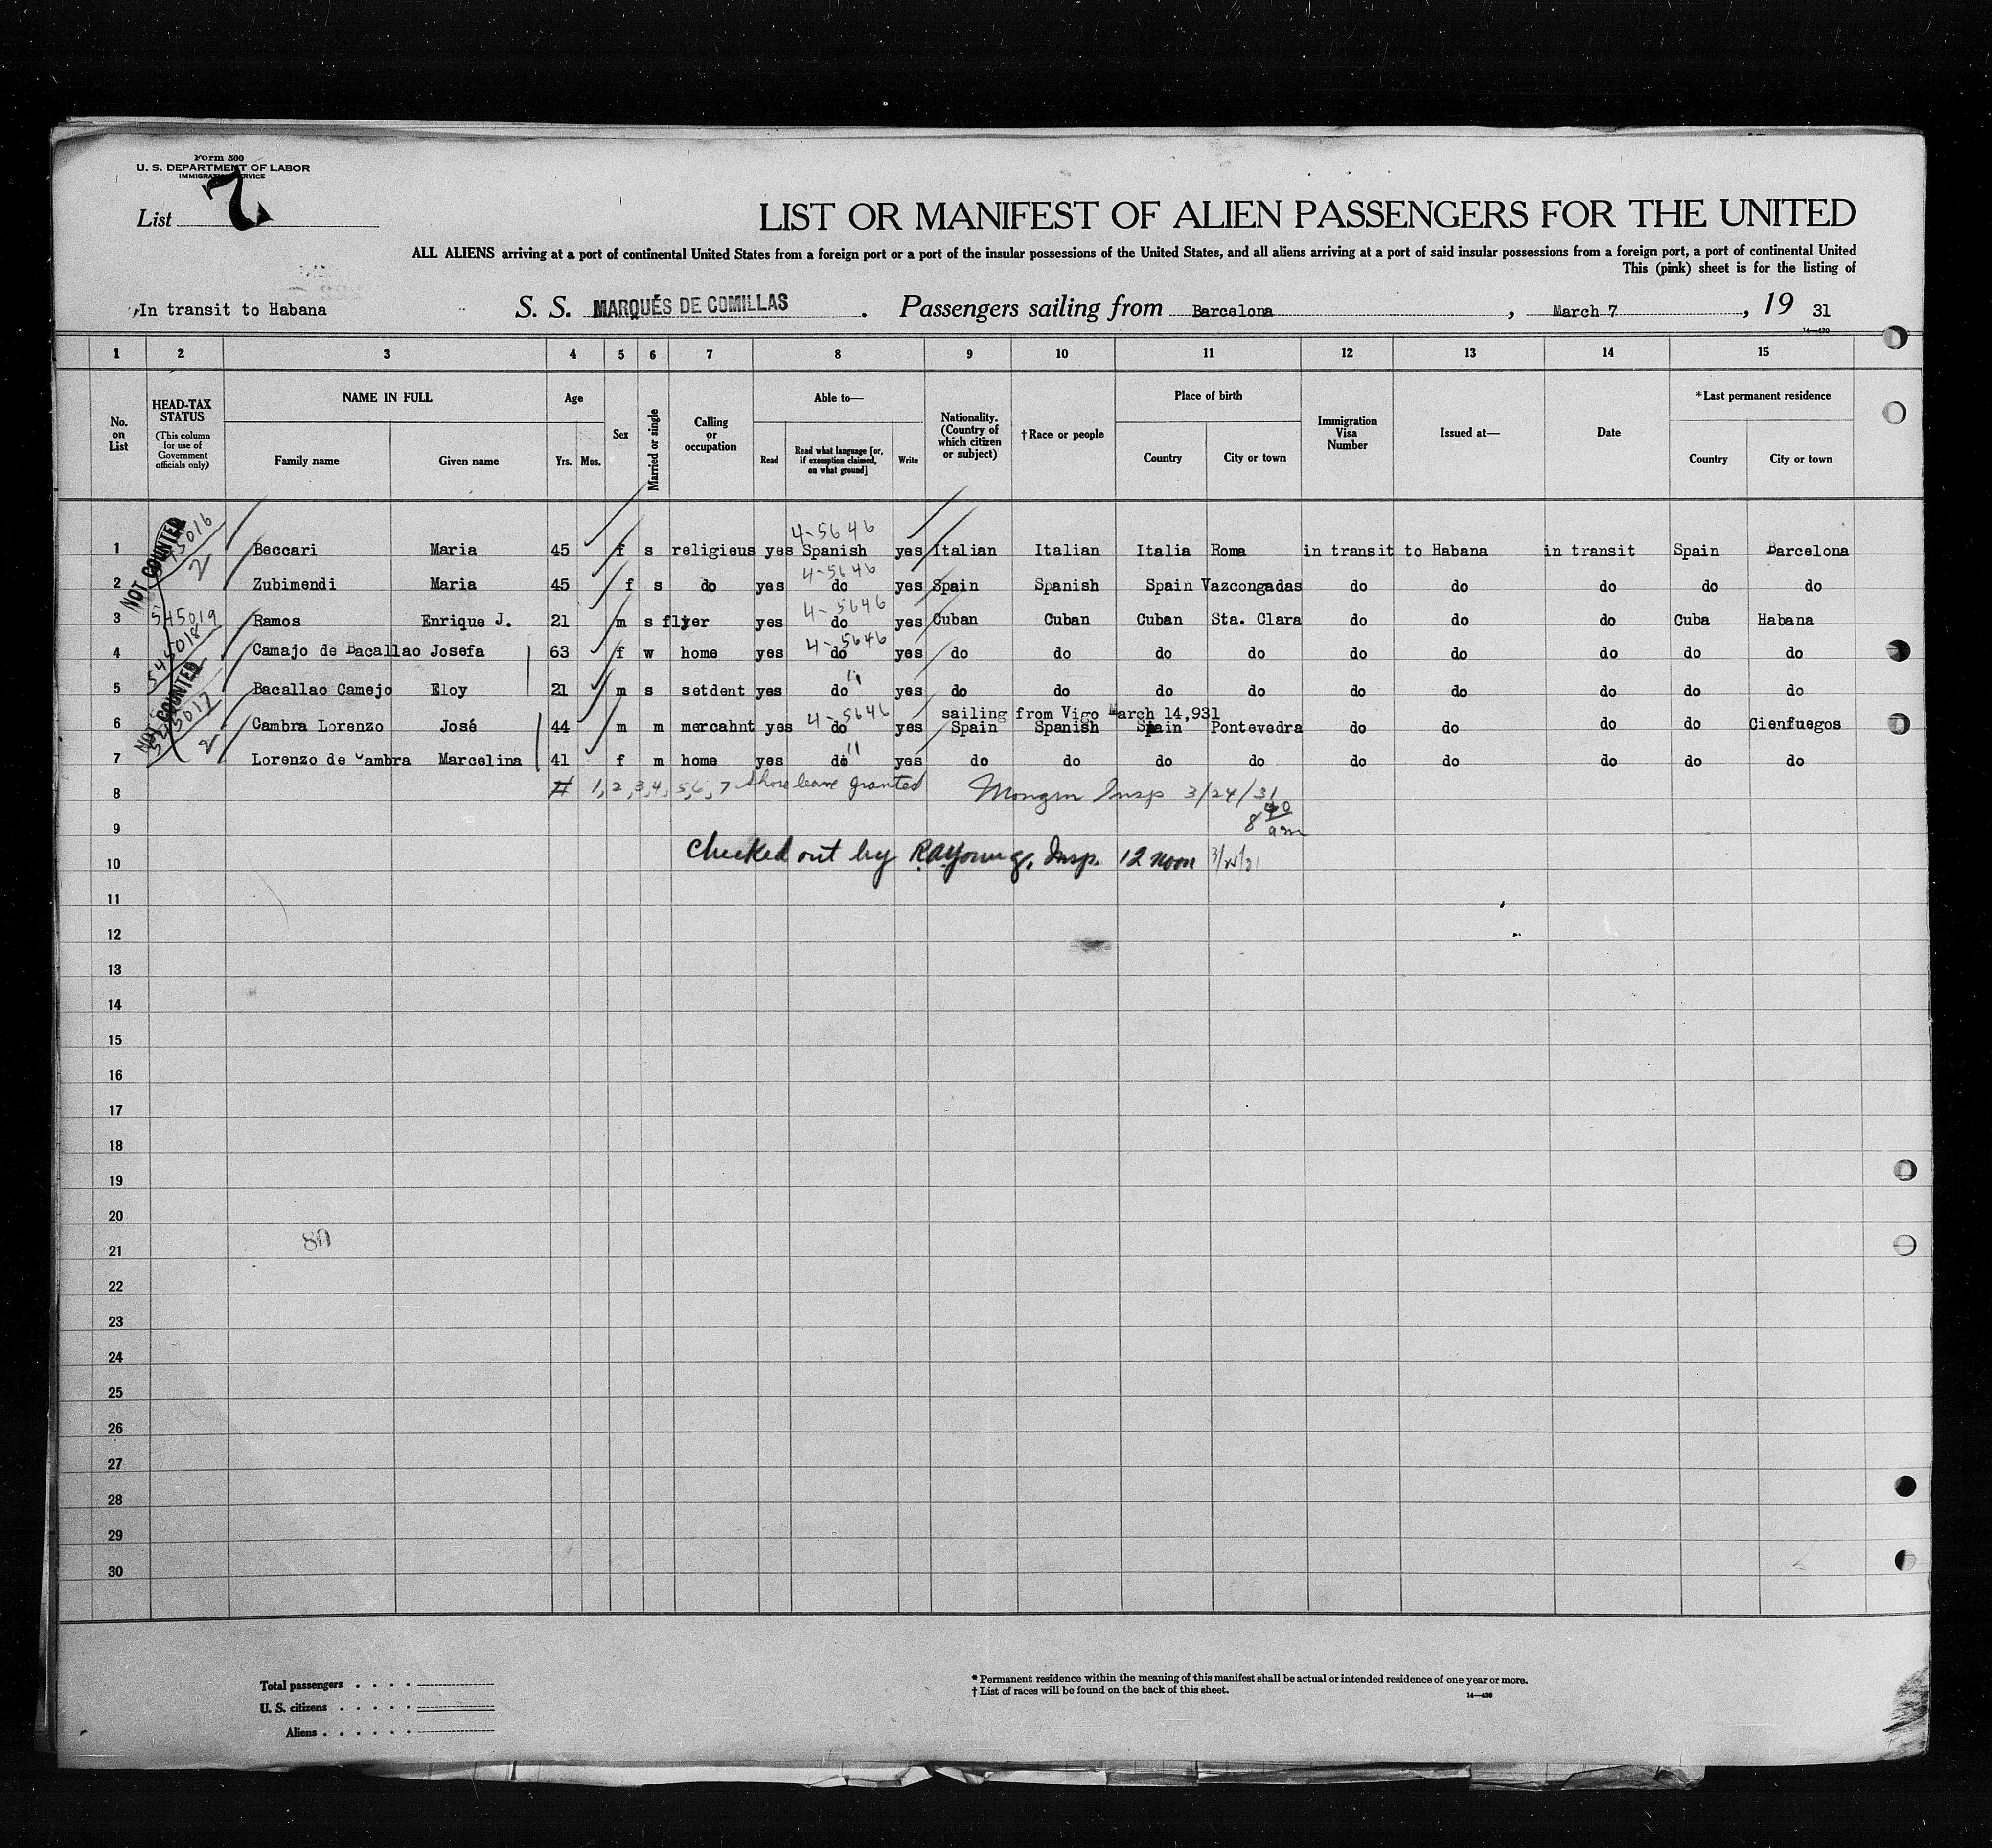 Form 500
U. S. DEPARTMENT OF LABOR
IMMIGRATION SERVICE
List 7.
LIST OR MANIFEST OF ALIEN PASSENGERS FOR THE UNITED
ALL ALIENS arriving at a port of continental United States from a foreign port or a port of the insular possessions of the United States, and all aliens arriving at a port of said insular possessions from a foreign port, a port of continental United
This (pink) sheet is for the listing of
In transit to Habana S. S. MARQUÉS DE COMILLAS. Passengers sailing from Barcelona, March 7, 19 31
14—430
1 2 3 4 5 6 7 8 9 10 11 12 13 14 15
No. on List
HEAD-TAX STATUS (This column for use of Government officials only)
NAME IN FULL
Family name Given name
Age
Yrs. Mos.
Sex
Married or single
Calling or occupation
Able to—
Read Read what language [or, if exemption claimed, on what ground] Write
Nationality. (Country of which citizen or subject)
†Race or people
Place of birth
Country City or town
Immigration Visa Number
Issued at—
Date
*Last permanent residence
Country City or town
NOT COUNTED
545016
2
4-5646
1 Beccari Maria 45 f s religieus yes Spanish yes Italian Italian Italia Roma in transit to Habana in transit Spain Barcelona
4-5646
2 Zubimendi Maria 45 f s do yes do yes Spain Spanish Spain Vazcongadas do do do do do
545019
4-5646
3 Ramos Enrique J. 21 m s flyer yes do yes Cuban Cuban Cuban Sta. Clara do do do Cuba Habana
545018
4-5646
4 Camajo de Bacallao Josefa 63 f w home yes do yes do do do do do do do do do
NOT COUNTED
5 Bacallao Camejo Eloy 21 m s setdent yes do " yes do do do do do do do do do
545017
2
sailing from Vigo March 14,931
4-5646
6 Cambra Lorenzo José 44 m m mercahnt yes do yes Spain Spanish Spain Pontevedra do do do do Cienfuegos
7 Lorenzo de Cambra Marcelina 41 f m home yes do " yes do do do do do do do do do
8 # 1,2,3,4,5,6,7 Shore leave granted Insp 3/24/31
8 40 am
9
10 Checked out by R.A. Young, Insp. 12 noon
11
12
13
14
15
16
17
18
19
20
21
22
23
24
25
26
27
28
29
30
Total passengers . . . .
U. S. citizens . . . . .
Aliens . . . . . .
* Permanent residence within the meaning of this manifest shall be actual or intended residence of one year or more.
† List of races will be found on the back of this sheet.
14—430